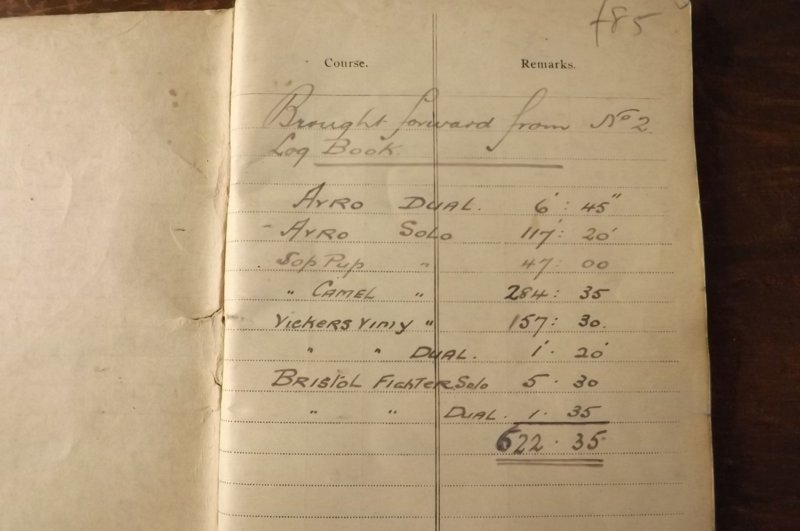 +85
Course. Remarks.
Brought forward from No 2
Log Book.
AVRO DUAL. 6' : 45"
" AVRO SOLO 117' : 20'
Sop Pup " 47 : 00
" CAMEL " 284 : 35
Vickers Vimy " 157 : 30.
" " DUAL. 1 . 20
BRISTOL FIGHTER Solo 5 . 30
" " DUAL. 1 . 35
622 . 35